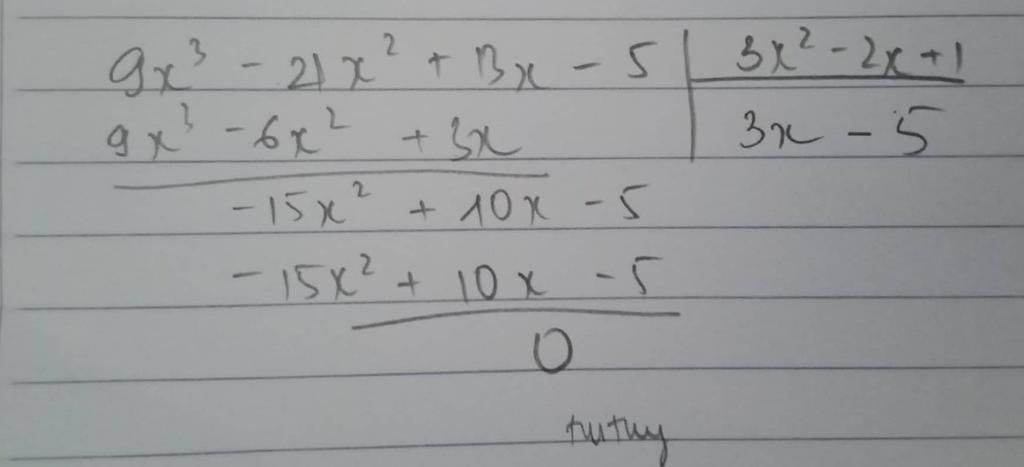 9x³ - 21x² + 13x - 5 | 3x² - 2x + 1
9x³ - 6x² + 3x | 3x - 5
-15x² + 10x - 5
-15x² + 10x - 5
0
tutuy